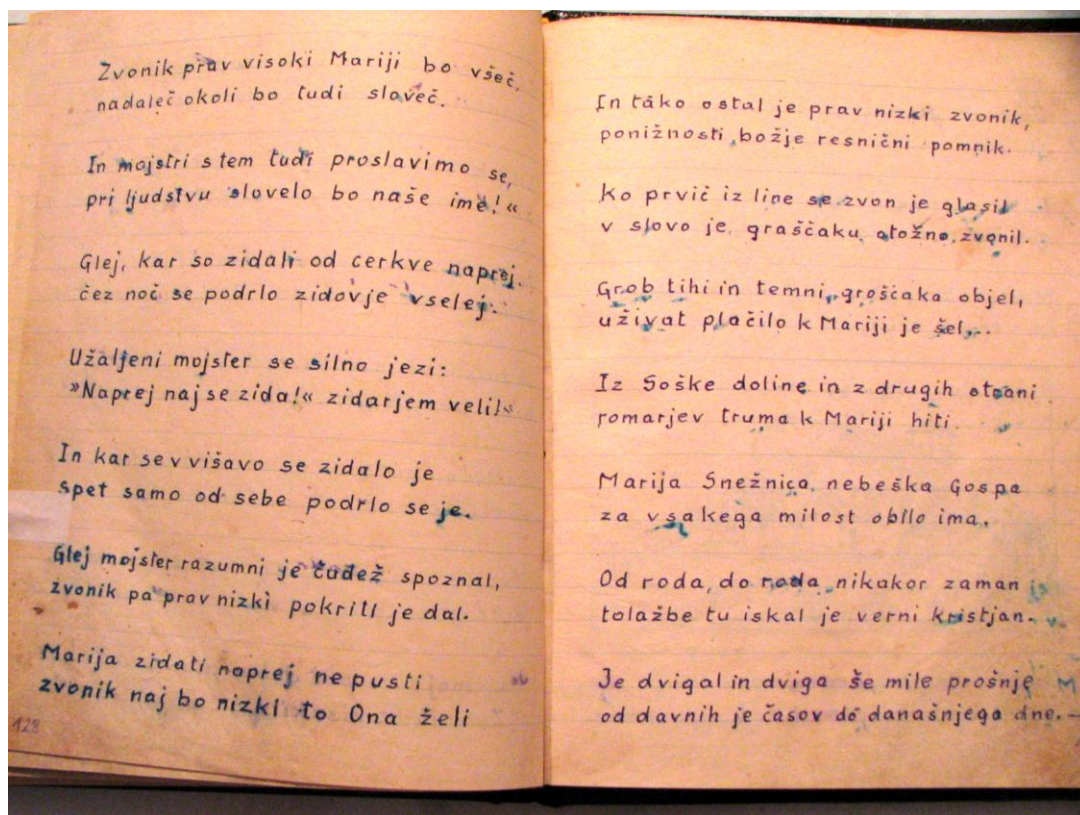 Zvonik prav visoki Mariji bo všeč,
nadaleč okoli bo tudi sloveč.
In mojstri s tem tudi proslavimo se,
pri ljudstvu slovelo bo naše ime!«
Glej, kar so zidali od cerkve naprej.
čez noč se podrlo zidovje vselej.
Užaljeni mojster se silno jezi:
»Naprej naj se zida!« zidarjem veli!«
In kar se v višavo se zidalo je
spet samo od sebe podrlo se je.
Glej mojster razumni je čudež spoznal,
zvonik pa prav nizki pokriti je dal.
Marija zidati naprej ne pusti
zvonik naj bo nizki to Ona želi
128
In tako ostal je prav nizki zvonik,
ponižnosti božje resnični pomnik.
Ko prvič iz line se zvon je glasil
v slovo je graščaku otožno zvonil.
Grob tihi in temni graščaka objel,
uživat plačilo k Mariji je šel...
Iz Soške doline in z drugih strani
romarjev truma k Mariji hiti.
Marija Snežnica, nebeška Gospa
za vsakega milost obilo ima.
Od roda, do roda nikakor zaman
tolažbe tu iskal je verni kristjan.
Je dvigal in dviga še mile prošnje
od davnih je časov do današnjega dne.-